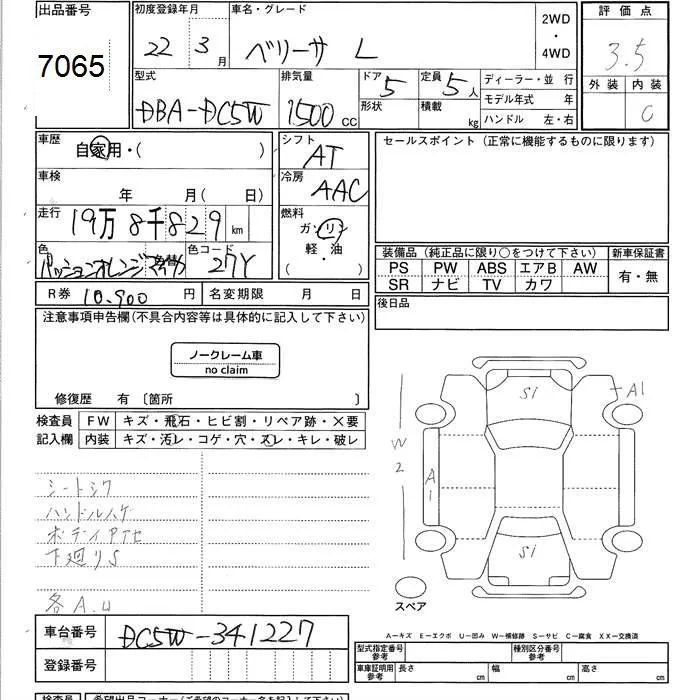 出品番号
7065
初度登録年月
22 3 月
車名・グレード
ベリーサ L
2WD
・
4WD
評価点
3.5
型式
DBA-DC5W
排気量
1500 CC
ドア 5
形状
定員 5 人
積載 kg
ディーラー・並 行
モデル年式 年
ハンドル 左・右
外装 内装
C
車歴
自家用・( )
シフト
AT
セールスポイント (正常に機能するものに限ります)
車検
年 月( 日)
冷房
AAC
走行
19万8千829 km
燃料
ガソリン
軽・油
( ・ )
色
パッションオレンジマイカ
色コード
27Y
装備品 (純正品に限り○をつけて下さい)
新車保証書
PS PW ABS エアB AW
有・無
SR ナビ TV カワ
R券 10,900 円
名変期限 月 日
後日品
注意事項申告欄(不具合内容等は具体的に記入して下さい)
ノークレーム車
no claim
修復歴 有 〔箇所 〕
検査員
記入欄
FW キズ・飛石・ヒビ割・リペア跡・×要
内装 キズ・汚レ・コゲ・穴・スレ・キレ・破レ
シートシワ
ハンドルハゲ
下廻りS
各A.U
Si
A1
W2
A1
Si
スペア
車台番号
DC5W-341227
登録番号
A−キズ E−エクボ U−凹み W−補修跡 S−サビ C−腐食 XX−交換済
型式指定番号
参考
種別区分番号
参考
車庫証明用
参考
長さ cm
幅 cm
高さ cm
検査員
希望出品コーナー(ご希望のコーナー名を記入下さい)